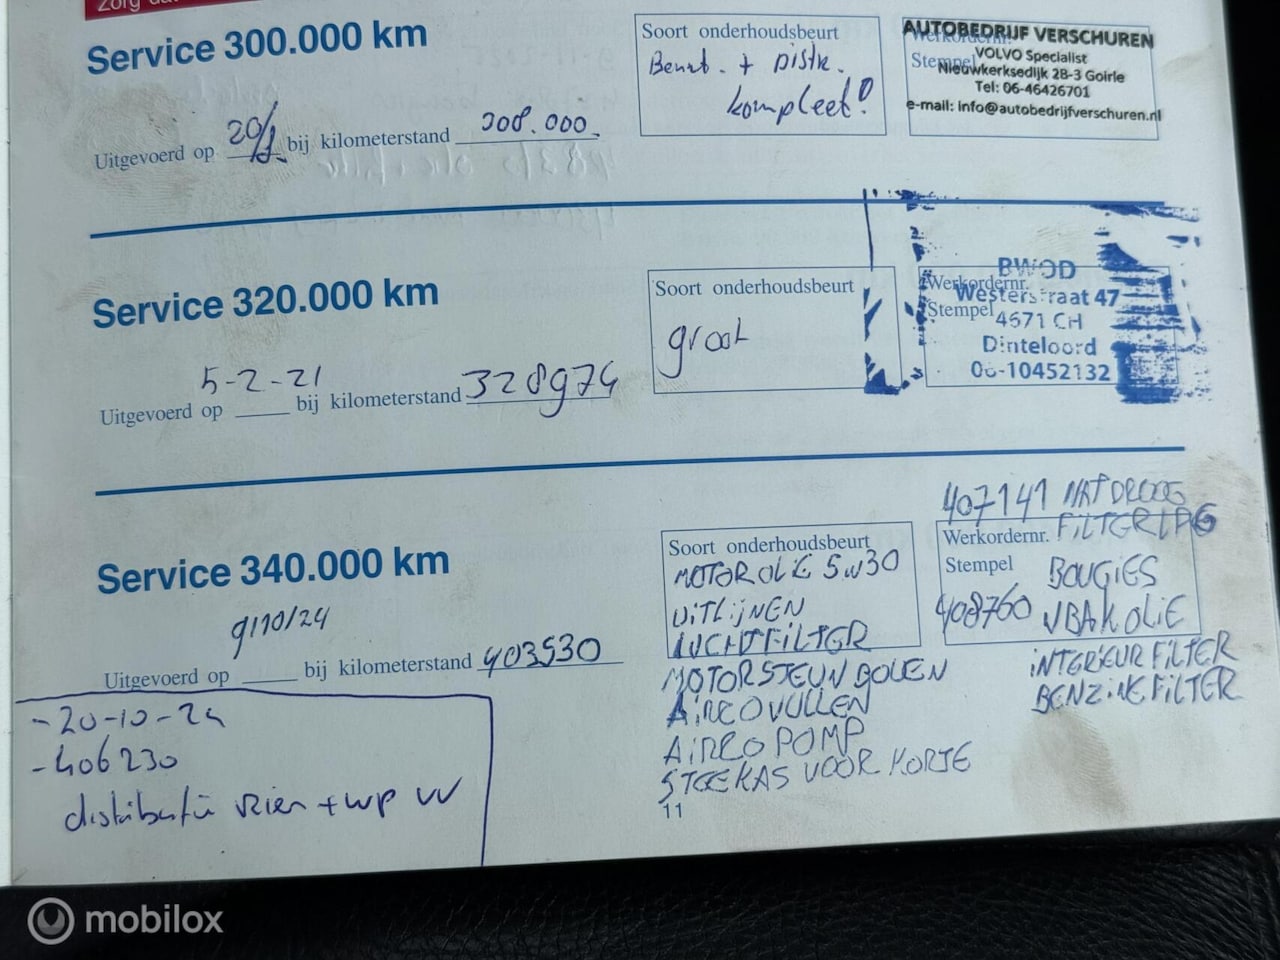 Zorg da
Service 300.000 km
Uitgevoerd op bij kilometerstand 308.000.
Soort onderhoudsbeurt
Beurt. + Distr.
kompleet!
AUTOBEDRIJF VERSCHUREN
Werkordernr.
Stempel
VOLVO Specialist
Nieuwkerksedijk 28-3 Goirle
Tel: 06-46426701
e-mail: info@autobedrijfverschuren.nl
Service 320.000 km
5-2-21
Uitgevoerd op bij kilometerstand 328974
Soort onderhoudsbeurt
groot
BWOD
Werkordernr.
Westerstraat 47
Stempel
4671 CH
Dinteloord
06-10452132
Service 340.000 km
9/10/24
Uitgevoerd op bij kilometerstand 403530
Soort onderhoudsbeurt
MOTOROLIE 5W30
UITLIJNEN
LUCHTFILTER
MOTORSTEUN BOVEN
AIRCO VULLEN
AIRCO POMP
STEEKAS VOOR KORTE
407141 NATDROOG
FILTER LPG
Werkordernr.
Stempel
BOUGIES
408760 VBAK OLIE
INTERIEUR FILTER
BENZINE FILTER
-20-10-24
-406230
distributie riem + wp vv
11
mobilox